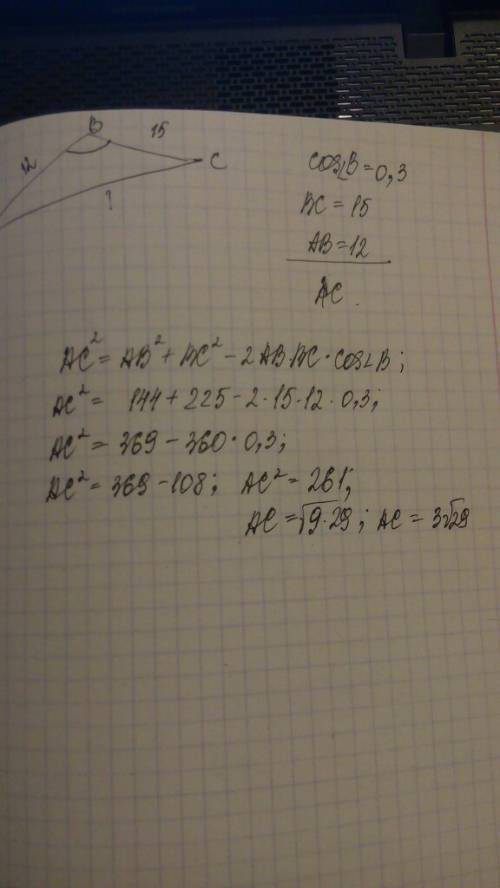 B 15
12 C
?
cos∠B = 0,3
BC = 15
AB = 12
AC
AC² = AB² + BC² - 2AB·BC·cos∠B;
AC² = 144 + 225 - 2·15·12·0,3;
AC² = 369 - 360·0,3;
AC² = 369 - 108; AC² = 261;
AC = √9·29; AC = 3√29